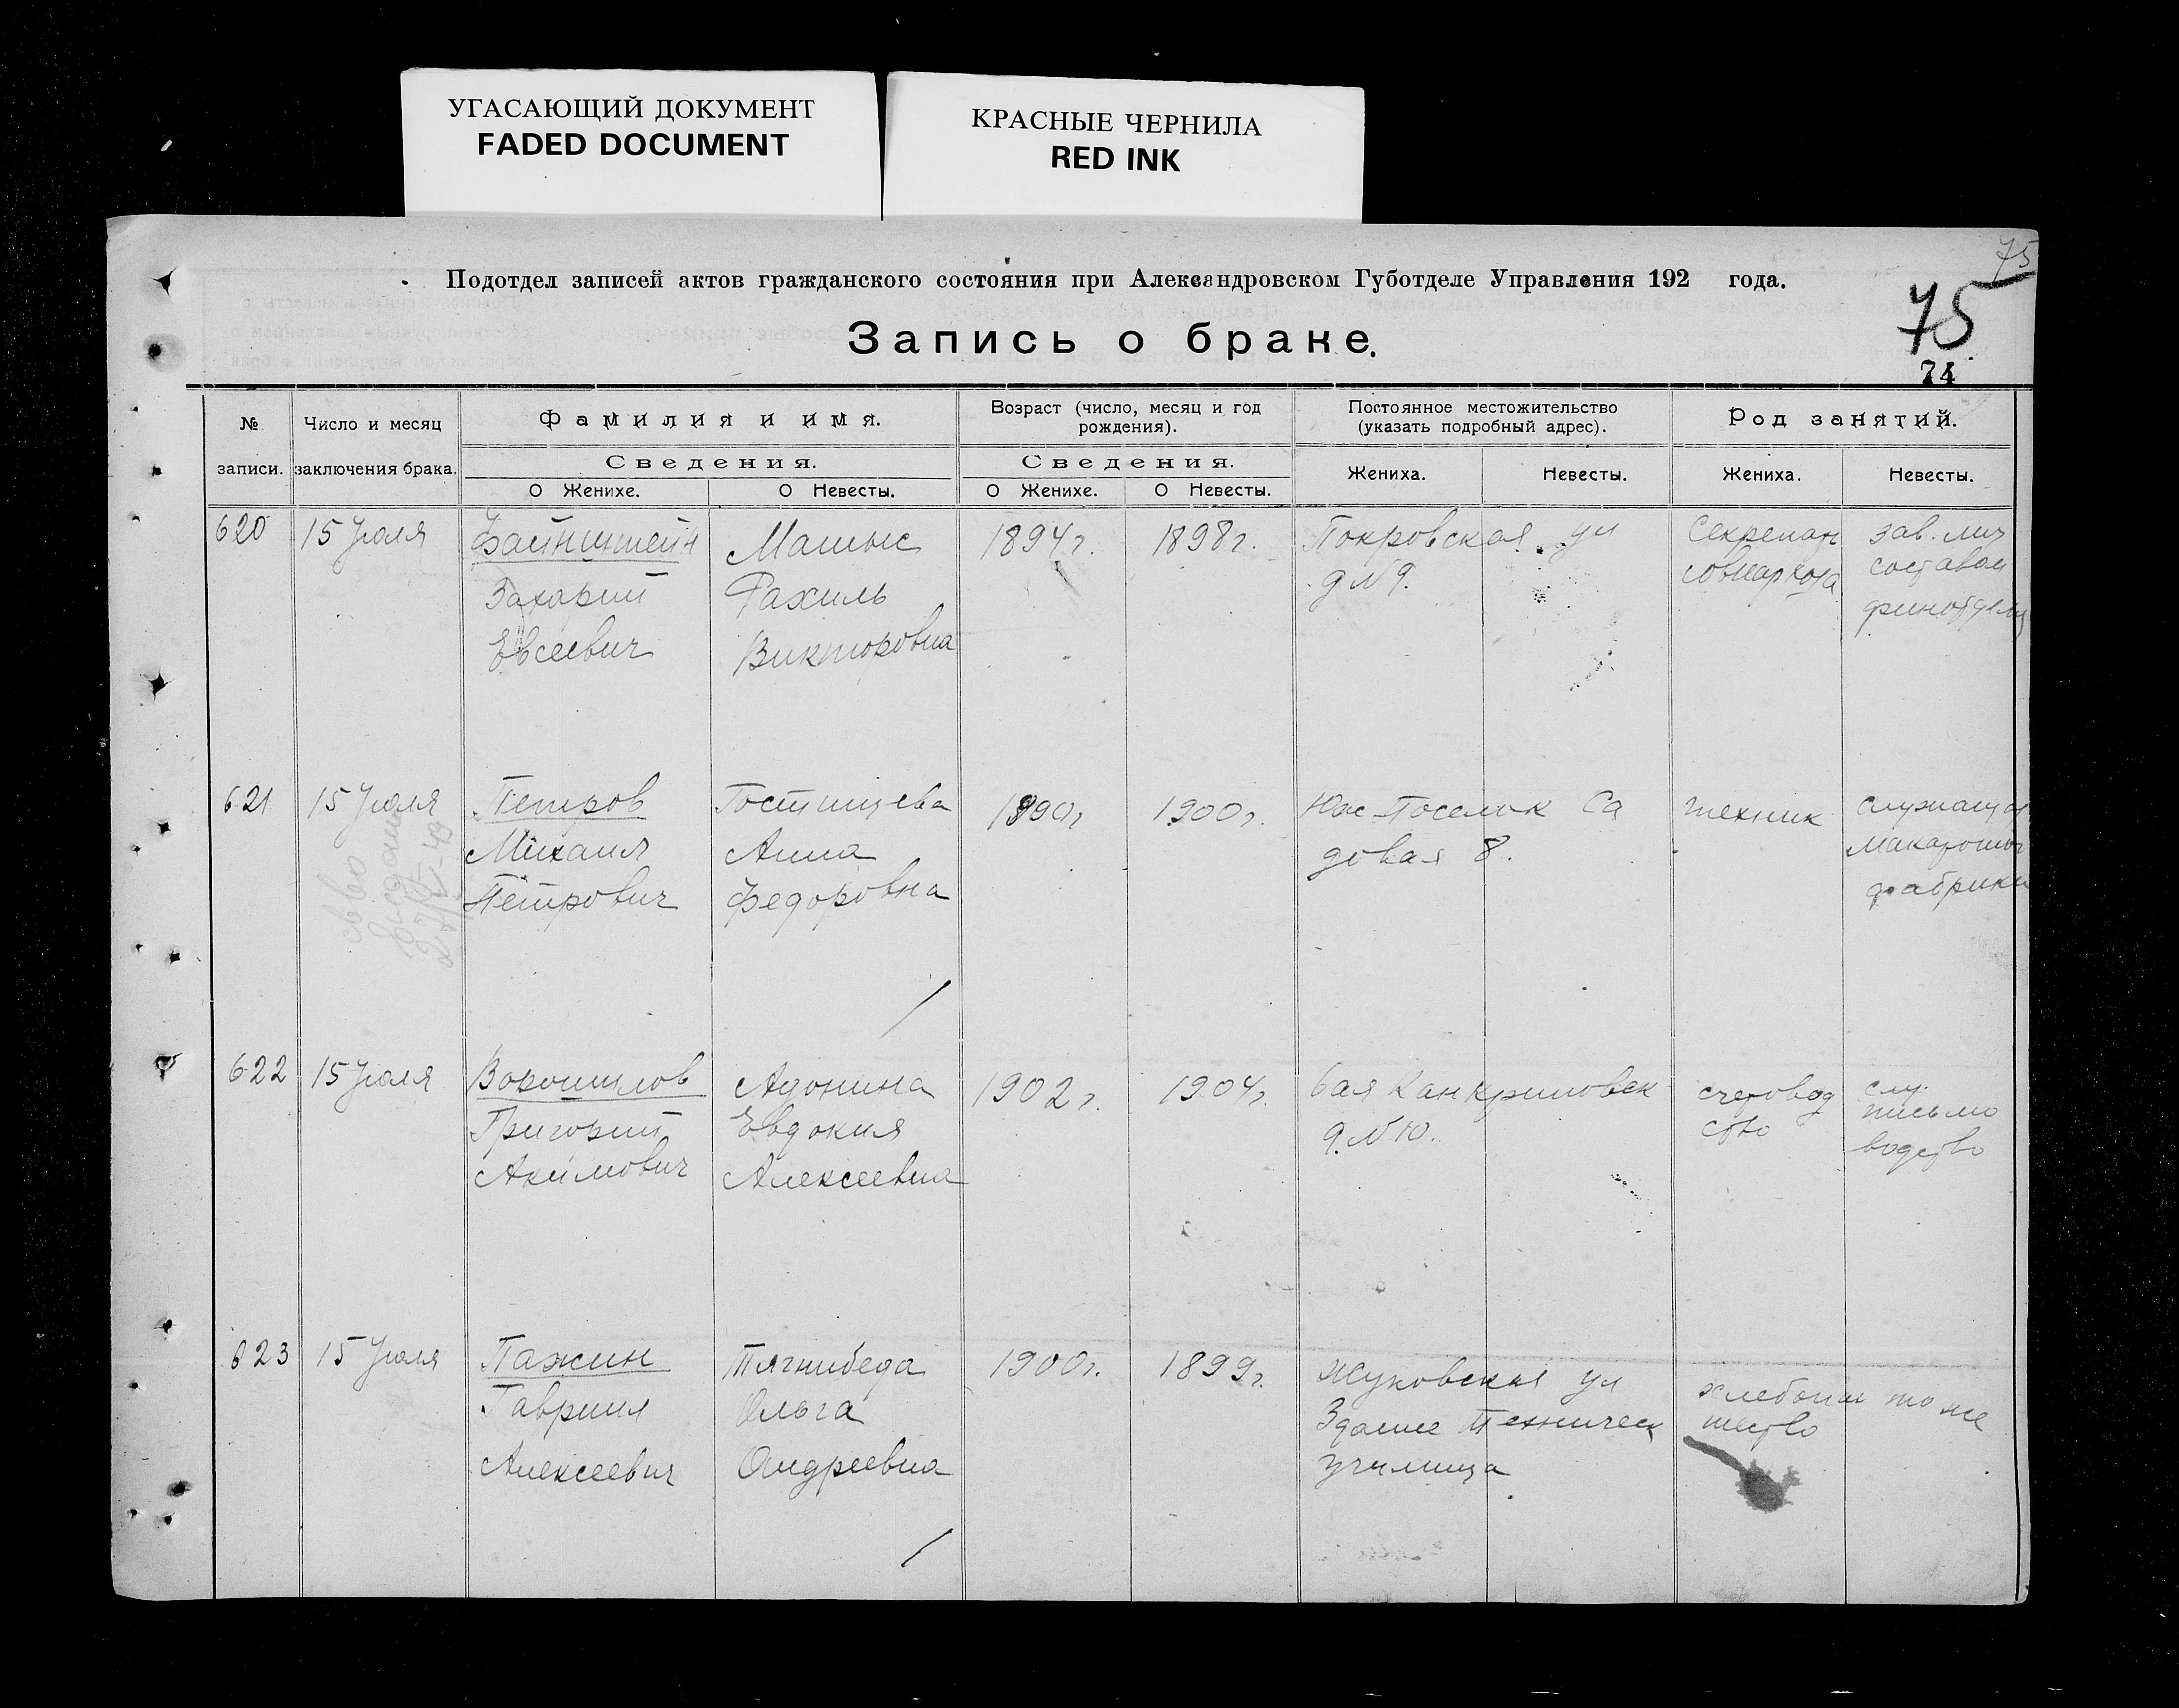 УГАСАЮЩИЙ ДОКУМЕНТ
FADED DOCUMENT
КРАСНЫЕ ЧЕРНИЛА
RED INK
75
Подотдел записей актов гражданского состояния при Александровском Губотделе Управления 192 года.
75
Запись о браке.
74
№ записи.
Число и месяц заключения брака.
Фамилия и имя.
Сведения.
О Женихе.
О Невесты.
Возраст (число, месяц и год
рождения).
Сведения.
О Женихе.
О Невесты.
Постоянное местожительство
(указать подробный адрес).
Жениха.
Невесты.
Род занятий.
Жениха.
Невесты.
620
15 Июля
Файнштейн
Захарий
Евсеевич
Рахиль
Викторовна
1894 г.
1898 г.
Покровская ул
д N 9.
Секретарь
зав. лич
составом
финотдела
621
15 Июля
Петров
Михаил
Петрович
Гостищева
Анна
Федоровна
1890 г
1900 г.
Юж Поселок Са
довая 8.
техник
служащая
макарон
фабрики
622
15 Июля
Ворошилов
Григорий
Акимович
Адонина
Евдокия
Алексеевна
1902 г.
1904 г.
д. N 10.
счетовод
ство
слу.
письмо
водство
623
15 Июля
Пажин
Гавриил
Алексеевич
Тягнибеда
Ольга
Андреевна
1900 г.
1899 г.
Жуковская ул
Здание Техническ
училища
хлебопа
шество
то же